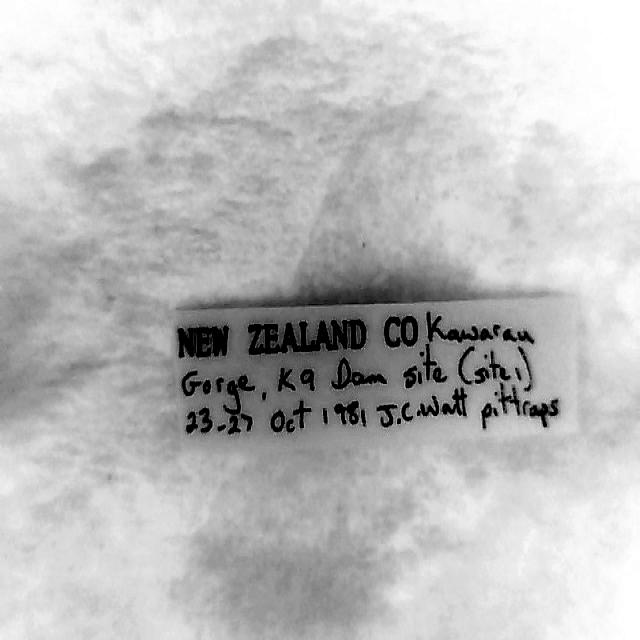 NEW ZEALAND CO Kawarau
Gorge, K9 Dam site (site 1)
23-27 Oct 1981 J.C. Watt pittraps